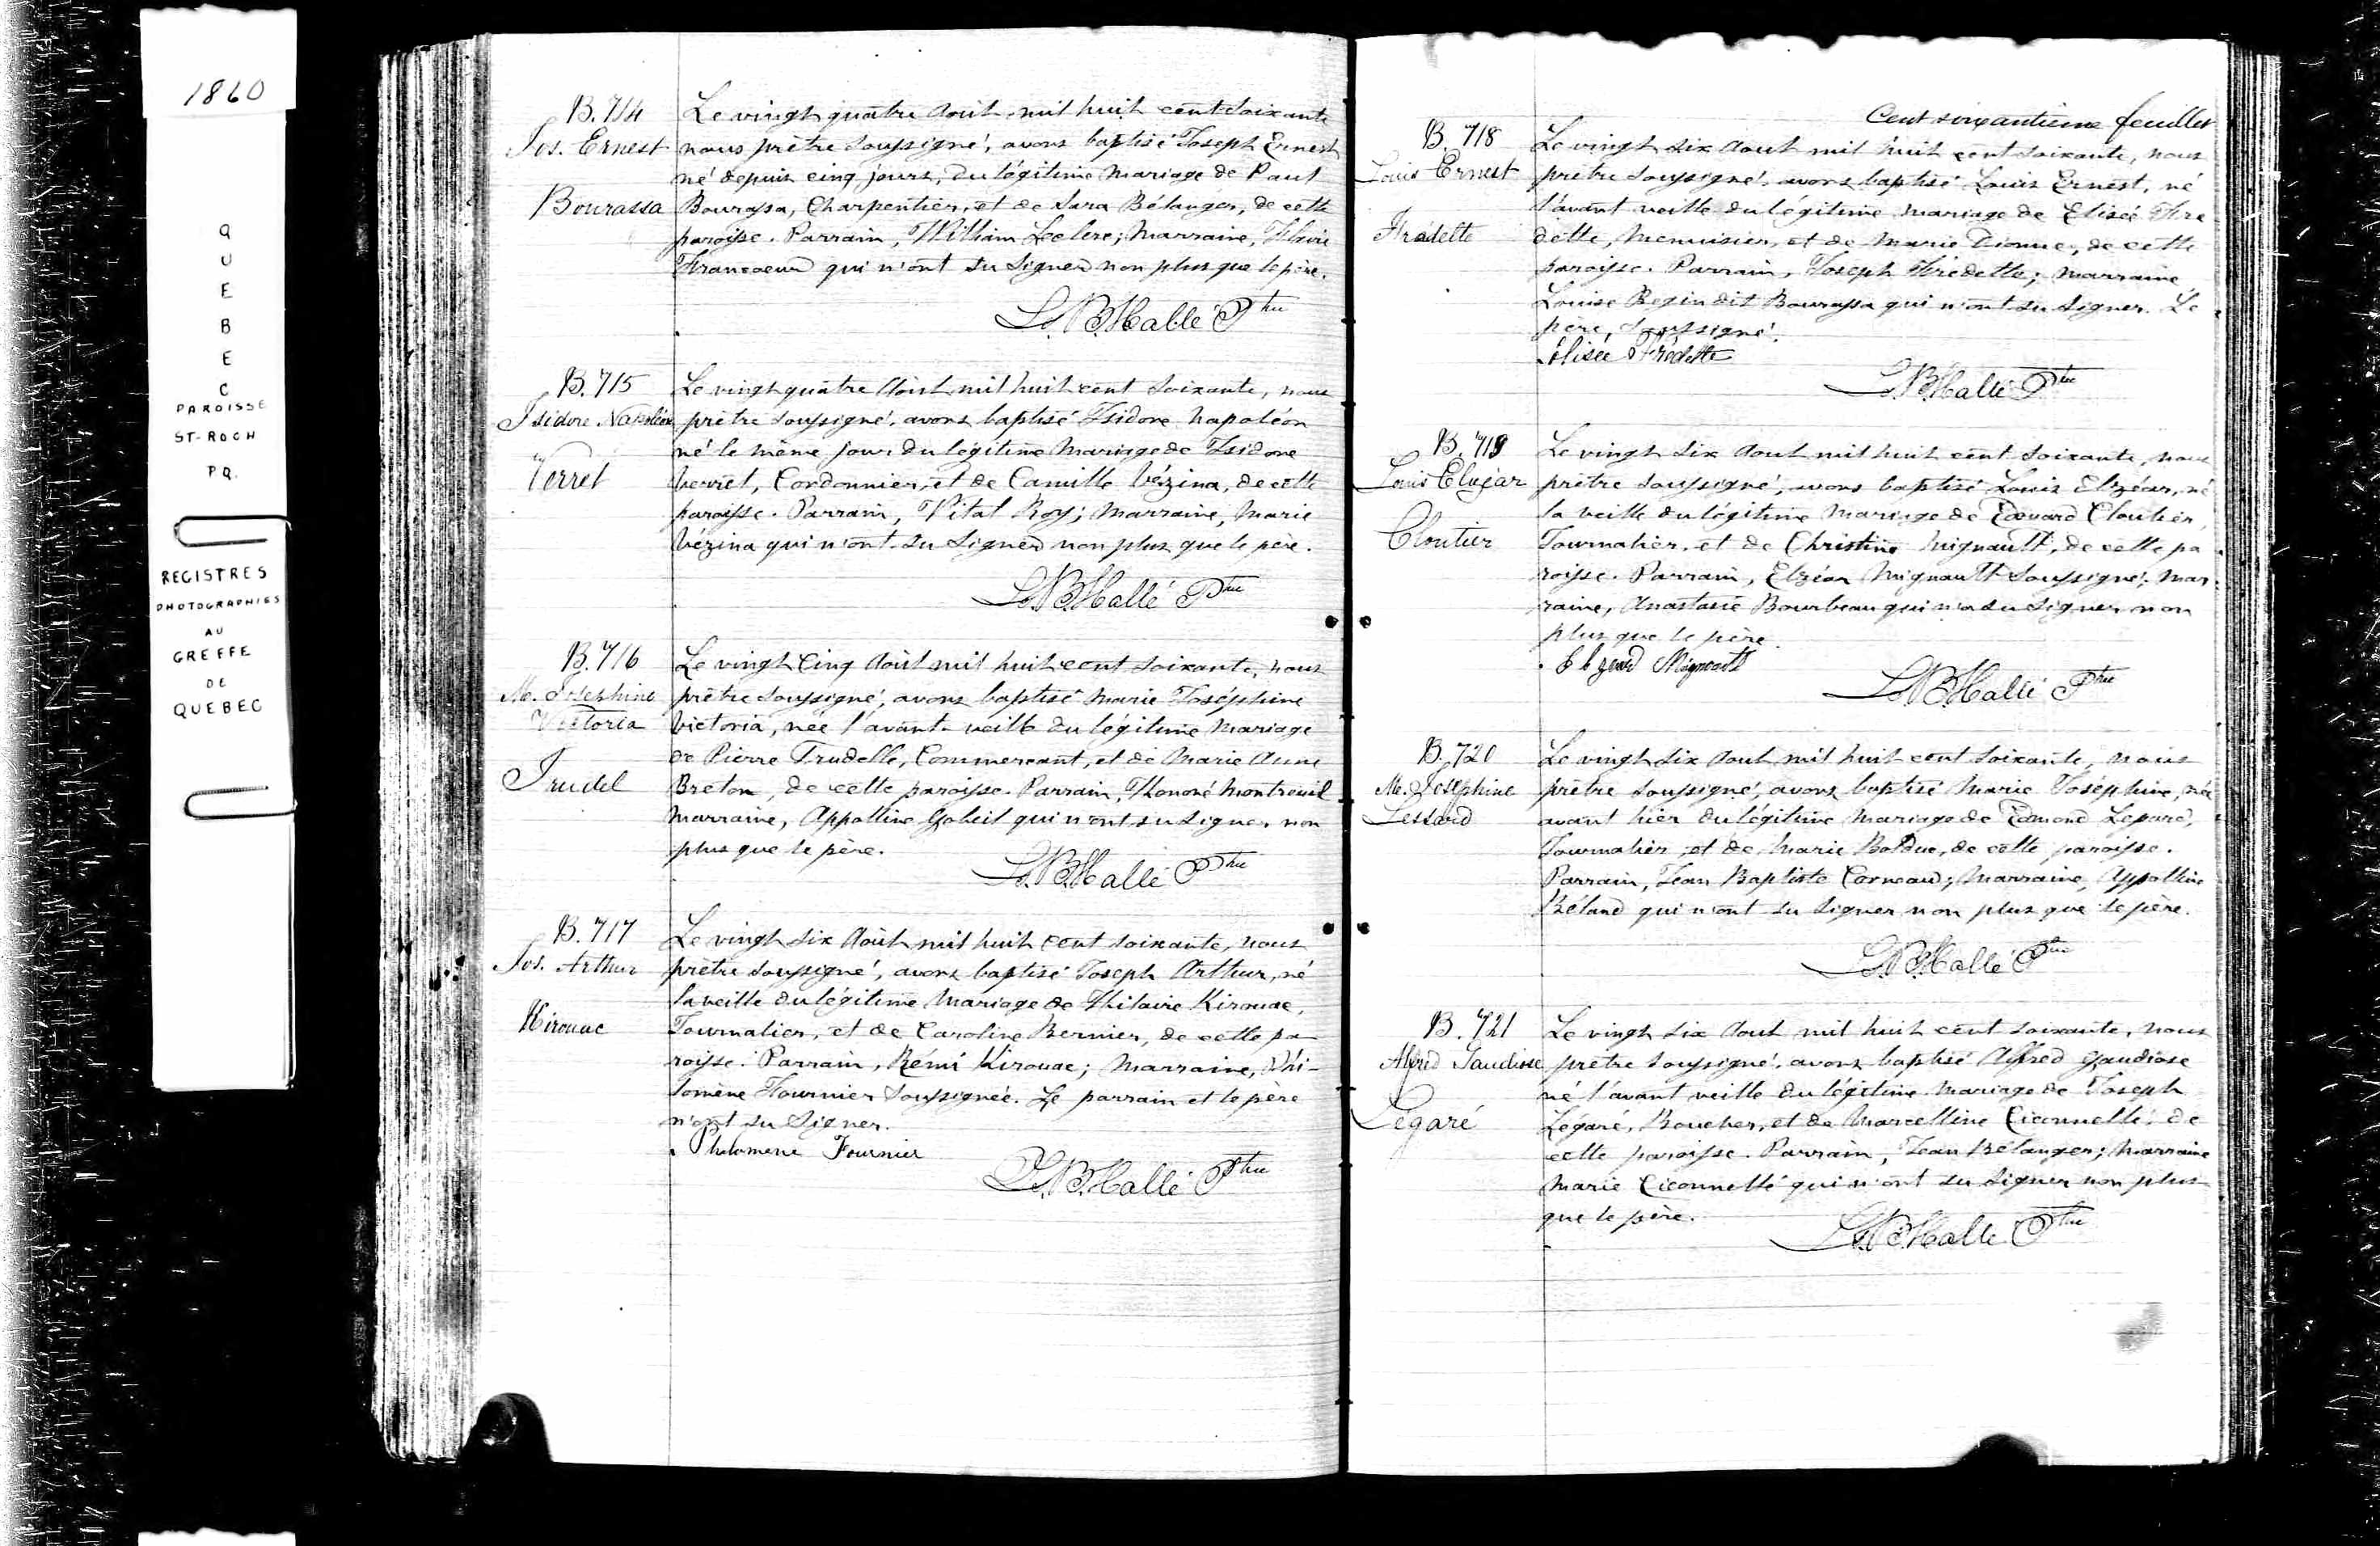 1860
QUEBEC
PAROISSE
ST-ROCH
P.Q.
REGISTRES
PHOTOGRAPHIES
AU
GREFFE
DE
QUEBEC
B. 714
Jos. Ernest
Bourassa
Le vingt quatre Août mil huit cent soixante
nous prêtre soussigné, avons baptisé Joseph Ernest
né depuis cinq jours, du légitime mariage de Paul
Bourassa, Charpentier, et de Sara Bélanger, de cette
paroisse. Parrain, William Leclerc; Marraine, Flavie
Francoeur qui n'ont su signer non plus que le père.
Ls. B. Hallé Ptre
B. 715
Isidore Napoléon
Verret
Le vingt quatre Août mil huit cent soixante, nous
prêtre soussigné, avons baptisé Isidore Napoléon
né le même jour du légitime mariage de Isidore
Verret, Cordonnier, et de Camille Vézina, de cette
paroisse. Parrain, Vital Roy; Marraine, Marie
Vézina qui n'ont su signer non plus que le père.
Ls. B. Hallé Ptre
B. 716
M. Josephine
Victoria
Trudel
Le vingt Cinq Août mil huit cent soixante, nous
prêtre soussigné, avons baptisé Marie Joséphine
Victoria, née l'avant-veille du légitime mariage
de Pierre Trudelle, Commercant, et de Marie Anne
Breton, de cette paroisse. Parrain, Honoré Montreuil
Marraine, Appolline Gobeil qui n'ont su signer non
plus que le père.
Ls. B. Hallé Ptre
B. 717
Jos. Arthur
Kirouac
Le vingt six Août mil huit cent soixante, nous
prêtre soussigné, avons baptisé Joseph Arthur, né
la veille du légitime mariage de Hilaire Kirouac,
Journalier, et de Caroline Bernier, de cette pa
roisse. Parrain, Rémi Kirouac; Marraine, Phi-
lomène Fournier soussignée. Le parrain et le père
n'ont su signer.
Philomene Fournier
Ls. B. Hallé Ptre
Cent soixantième feuillet
B. 718
Louis Ernest
Frédette
Le vingt six Août mil huit cent soixante, nous
prêtre soussigné, avons baptisé Louis Ernest, né
l'avant veille du légitime mariage de Elisée Fré
dette, Menuisier, et de Marie Dionne, de cette
paroisse. Parrain, Joseph Frédette; Marraine
Louise Begin dit Bourassa qui n'ont su signer. Le
père, soussigné.
Elisée Frédette
Ls. B. Hallé Ptre
B. 719
Louis Elzéar
Cloutier
Le vingt six Août mil huit cent soixante, nous
prêtre soussigné, avons baptisé Louis Elzéar, né
la veille du légitime mariage de Edouard Cloutier,
Journalier, et de Christine Mignault, de cette pa
roisse. Parrain, Elzéar Mignault soussigné, Mar
raine, Anastasie Bourbeau qui n'a su signer non
plus que le père.
Elzear Mignault
Ls. B. Hallé Ptre
B. 720
M. Josephine
Lessard
Le vingt six Août mil huit cent soixante, nous
prêtre soussigné, avons baptisé Marie Joséphine, née
avant hier du légitime mariage de Edmond Lessard,
Journalier, et de Marie Bolduc, de cette paroisse.
Parrain, Jean Baptiste Corneau; Marraine, Appolline
Béland qui n'ont su signer non plus que le père.
Ls. B. Hallé Ptre
B. 721
Alfred Gaudiose
Légaré
Le vingt six Août mil huit cent soixante, nous
prêtre soussigné, avons baptisé Alfred Gaudiose
né l'avant veille du légitime mariage de Joseph
Légaré, Boucher, et de Marcelline Ciconnelle, de
cette paroisse. Parrain, Jean Bélanger; Marraine
Marie Ciconnelle qui n'ont su signer non plus
que le père.
Ls. B. Hallé Ptre